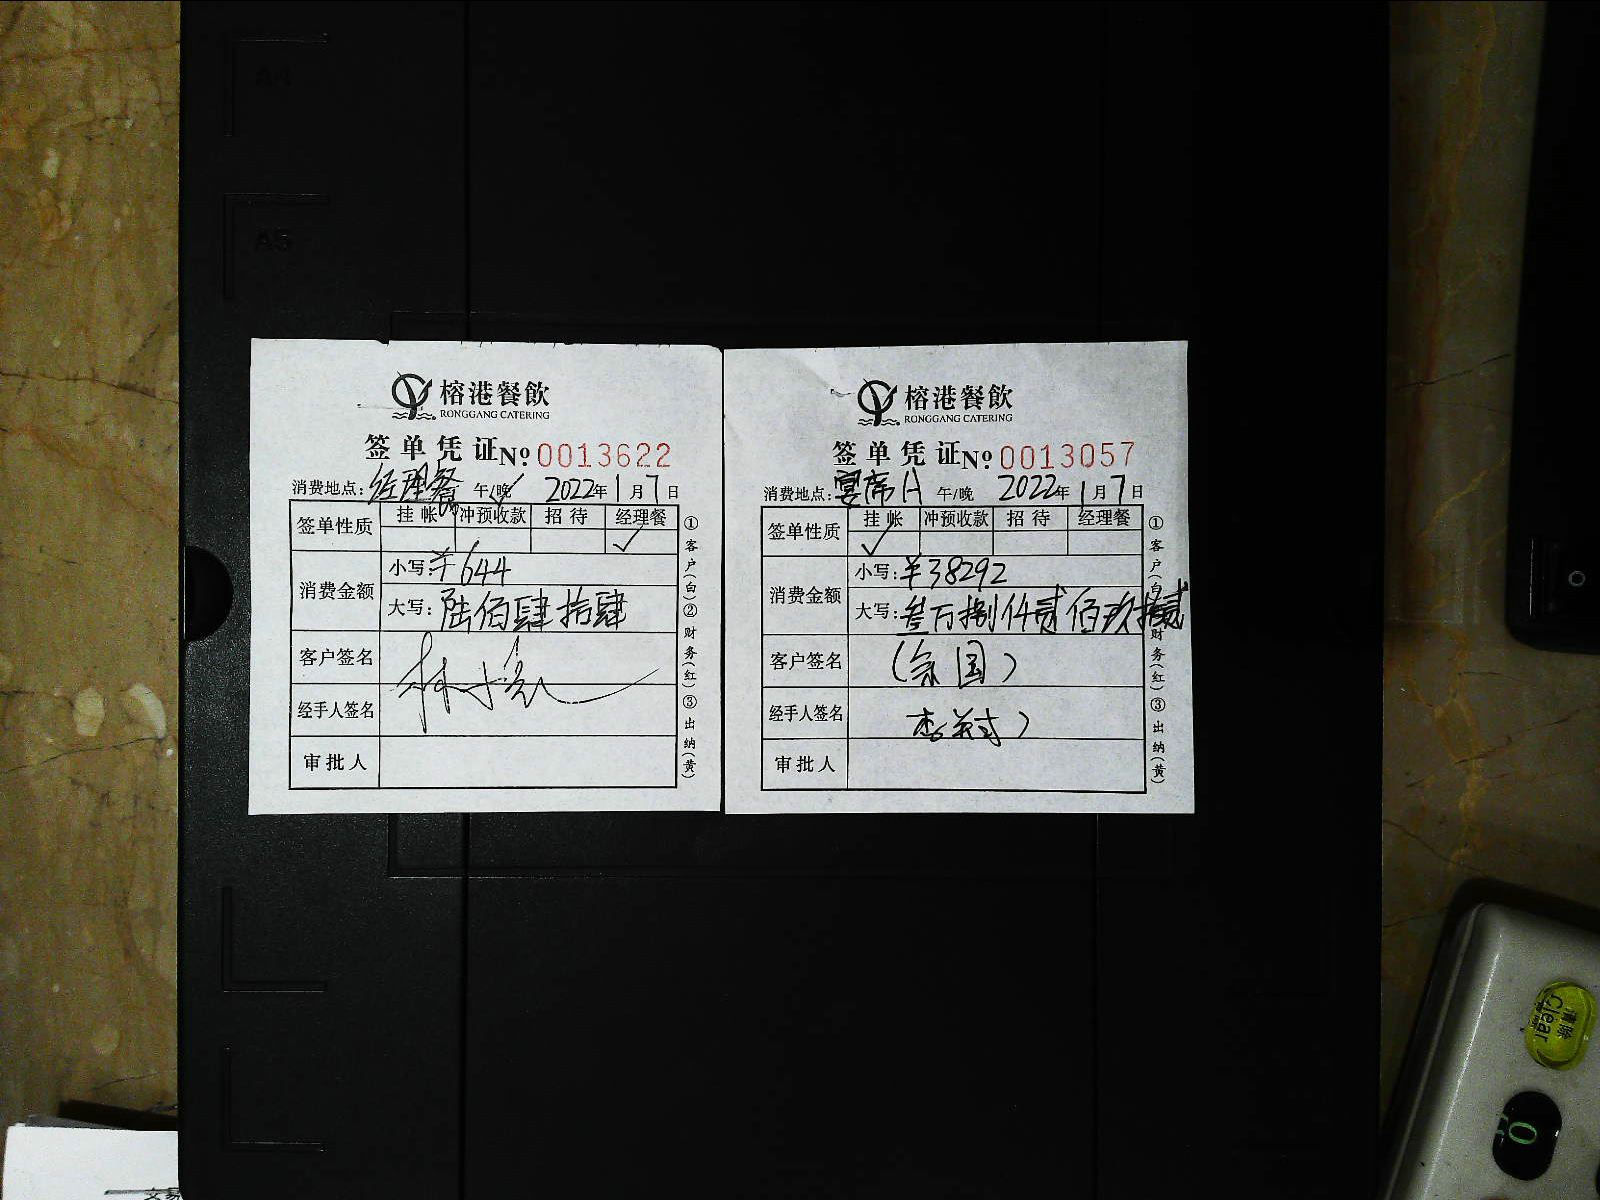 A4
A5
榕港餐飲
RONGGANG CATERING
签单凭证 No 0013622
消费地点:经理餐 午/晚 2022年1月7日
签单性质 挂帐 冲预收款 招待 经理餐
✓
消费金额
小写:¥644
大写:陆佰肆拾肆
客户签名
经手人签名
审批人
①客户(白)②财务(红)③出纳(黄)
榕港餐飲
RONGGANG CATERING
签单凭证 No 0013057
消费地点:宴席A 午/晚 2022年1月7日
签单性质 挂帐 冲预收款 招待 经理餐
✓
消费金额
小写:¥38292
大写:叁万捌仟贰佰玖拾贰
客户签名
经手人签名
审批人
①客户(白)②财务(红)③出纳(黄)
清除
Clear
0